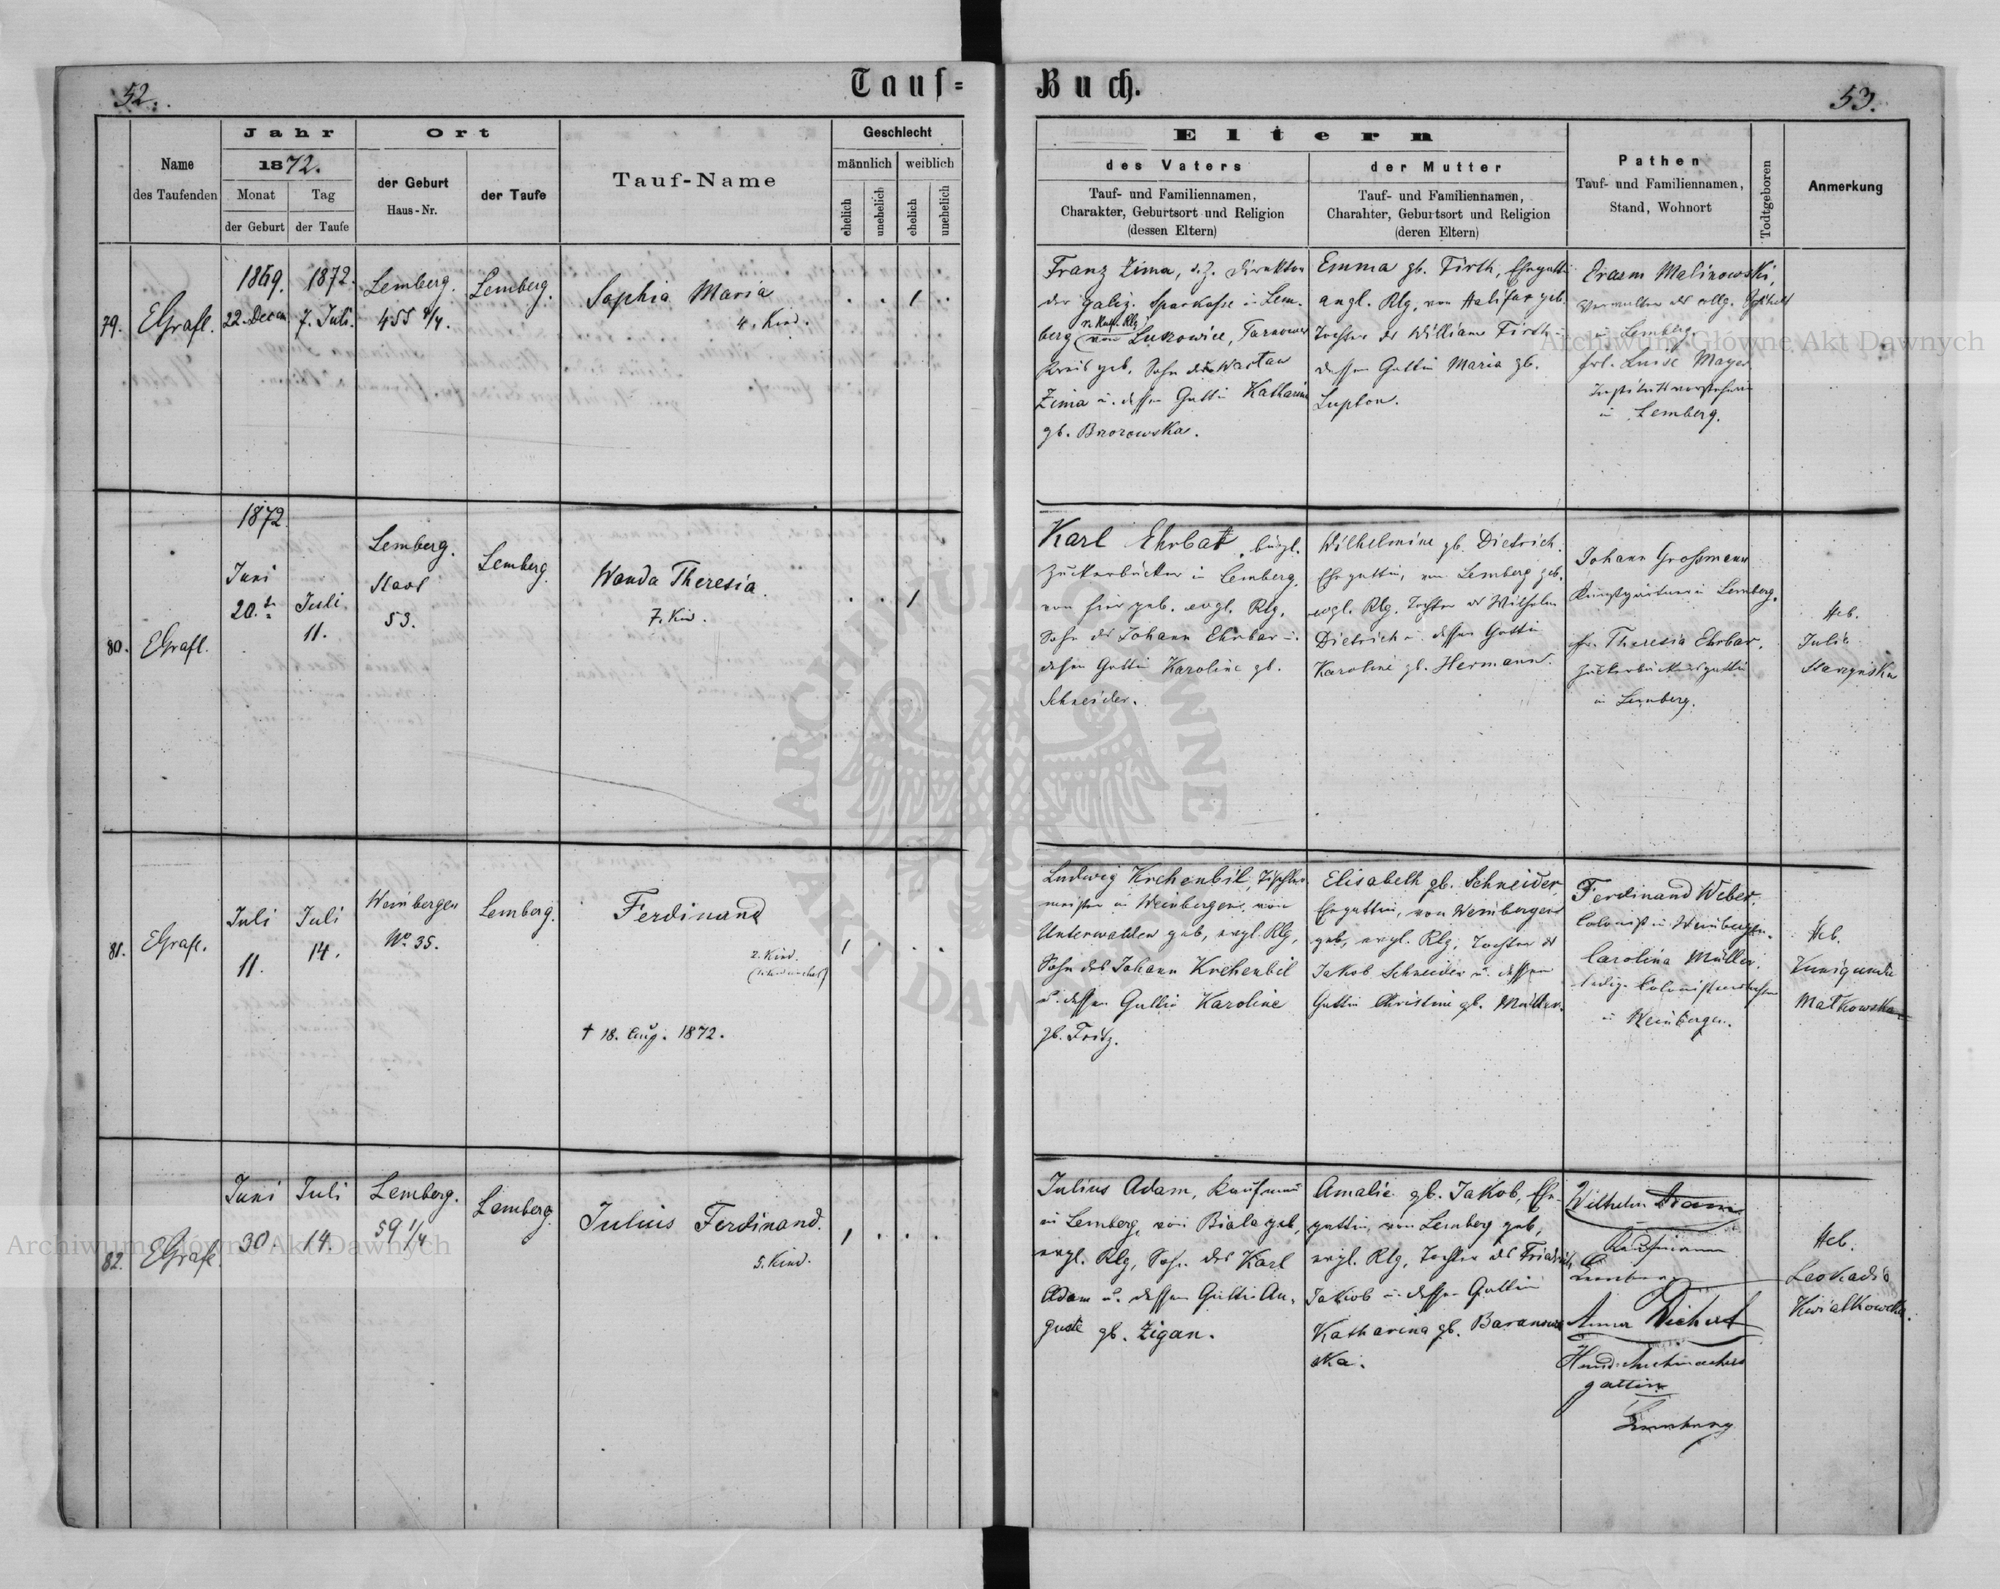 52.
Tauf=
Buch.
53.
Name
des Taufenden
Jahr
1872.
Monat
der Geburt
Tag
der Taufe
Ort
der Geburt
Haus-Nr.
der Taufe
Tauf-Name
Geschlecht
männlich
weiblich
ehelich
unehelich
ehelich
unehelich
Eltern
des Vaters
Tauf- und Familiennamen,
Charakter, Geburtsort und Religion
(dessen Eltern)
der Mutter
Tauf- und Familiennamen,
Charakter, Geburtsort und Religion
(deren Eltern)
Pathen
Tauf- und Familiennamen,
Stand, Wohnort
Todtgeboren
Anmerkung
79.
EGrafl.
1869.
22. Decem
1872.
7. Juli.
Lemberg.
455 4/4.
Lemberg.
Sophia Maria
4. Kind.
Franz Zima, Direktor
der galiz. Sparkasse in Lem-
berg (v. Kath. Rlg. von Lukowice, Tarnower
Kreis geb. Sohn des Wactaw
Zima u. dessen Gattin Katharina
gb. Brzozowska.
Emma gb. Firth, Ehegattin
angl. Rlg. von Halifax geb.
Tochter des William Firth u.
dessen Gattin Maria gb.
Lupton.
Erasm Malinowski,
Verwalter des allg. Spitals
in Lemberg.
frl. Luise Mayer
Institutsvorsteherin
in Lemberg.
80.
EGrafl.
1872
Juni
20.
Juli
11.
Lemberg.
Stadt
53.
Lemberg
Wanda Theresia.
7. Kind.
Karl Ehrbar, bürgl.
Zuckerbäcker in Lemberg,
von hier geb. evgl. Rlg.
Sohn des Johann Ehrbar u.
dessen Gattin Karoline gb.
Schneider.
Wilhelmine gb. Dietrich.
Ehegattin, von Lemberg geb.
evgl. Rlg. Tochter des Wilhelm
Dietrich u. dessen Gattin
Karoline gb. Hermann.
Johann Grossmann
Kunstgärtner in Lemberg.
Theresia Ehrbar,
Zuckerbäckersgattin
in Lemberg.
Heb.
Julie
Starzynska
81.
EGrafl.
Juli
11.
Juli
14.
Weinbergen
No. 35.
Lemberg.
Ferdinand
2. Kind.
† 18. Aug. 1872.
Ludwig Krehenbil, Tischler-
meister in Weinbergen, von
Unterwalden geb, evgl. Rlg,
Sohn des Johann Krehenbil
u. dessen Gattin Karoline
gb. Fritz.
Elisabeth gb. Schneider
Ehegattin, von Weinbergen
geb, evgl. Rlg, Tochter des
Jakob Schneider u. dessen
Gattin Christine gb. Müller.
Ferdinand Weber.
Colonist in Weinbergen.
Carolina Müller,
ledige Colonistenstochter
in Weinbergen.
Heb.
Kunigunde
Matkowska
82.
EGrafl.
Juni
30.
Juli
14.
Lemberg.
59 1/4
Lemberg
Julius Ferdinand.
5. Kind.
Julius Adam, Kaufmann
in Lemberg, von Biala geb,
evgl. Rlg, Sohn des Karl
Adam u. dessen Gattin Au-
guste gb. Zigan.
Amalie gb. Jakob, Ehe-
gattin, von Lemberg geb,
evgl. Rlg, Tochter des Friedrich
Jakob u. dessen Gattin
Katharina gb. Baranow-
ska.
Wilhelm Adam
Kaufmann
Lemberg
Anna Wichert
Handschuhmachers
gattin
Lemberg
Heb.
Leokadia
Kwiatkowska.
Archiwum Główne Akt Dawnych
Archiwum Główne Akt Dawnych
ARCHIWUM GŁÓWNE AKT DAWNYCH